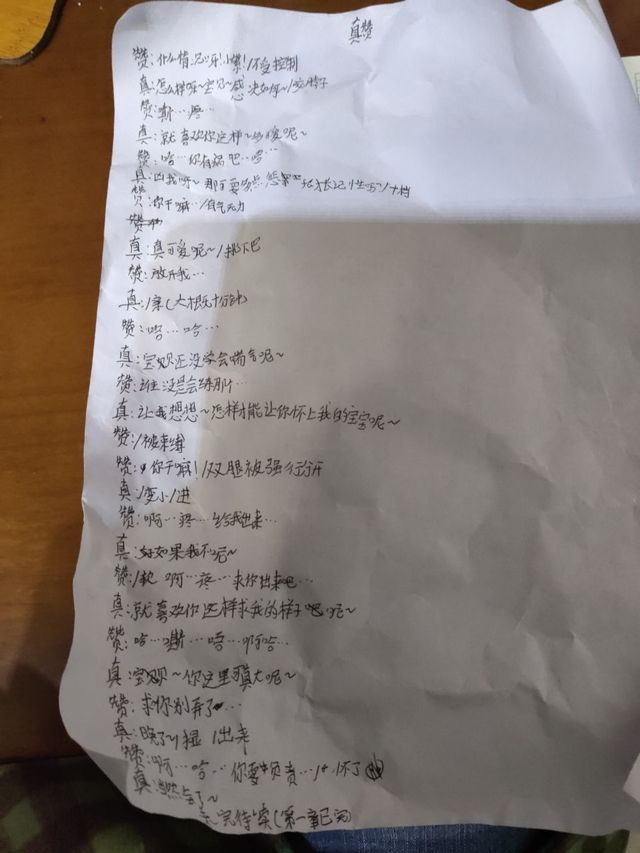 真赞
赞:什么情况呀!小紫!/不受控制
真:怎么样呀~宝贝~感觉如何~/咬脖子
赞:嘶…疼…
真:就喜欢你这样~可爱呢~
赞:唔…你有病吧…唔…
真:凶我呀~那可要多点惩罚
赞:你干嘛…/有气无力
真:真可爱呢~/挑下巴
赞:放开我…
真:/亲(大概十分钟)
赞:唔…哈…
真:宝贝还没学会喘气呢~
赞:谁没是会练那个…
真:让我想想~怎样才能让你怀上我的宝宝呢~
赞:/被束缚
赞:你干嘛!/双腿被强行分开
真:/变小/进
赞:啊…疼…给我出来…
真:如果我不呢~
赞:/软 啊…疼…求你出来吧…
真:就喜欢你这样求我的样子呢~
赞:哈…嘶…唔…啊哈…
真:宝贝~你这里可真大呢~
赞:求你别弄了…
真:晚了~/ /出来
赞:啊…哈…你要负责…/怀了
真:当然会了~
未完待续(第一章已完)